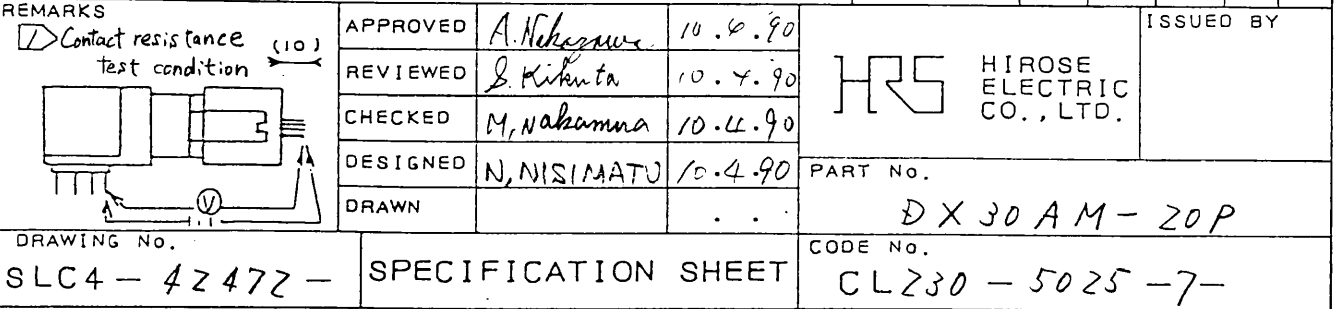 REMARKS
1 Contact resistance
test condition
(10)
V
APPROVED A. Nakazawa 10.4.90
REVIEWED S. Kikuta 10.4.90
CHECKED M, Nakamura 10.4.90
DESIGNED N, NISIMATU 10.4.90
DRAWN . .
HRS HIROSE
ELECTRIC
CO., LTD.
ISSUED BY
PART No.
DX30AM-20P
DRAWING No.
SLC4-42472-
SPECIFICATION SHEET
CODE No.
CL230-5025-7-